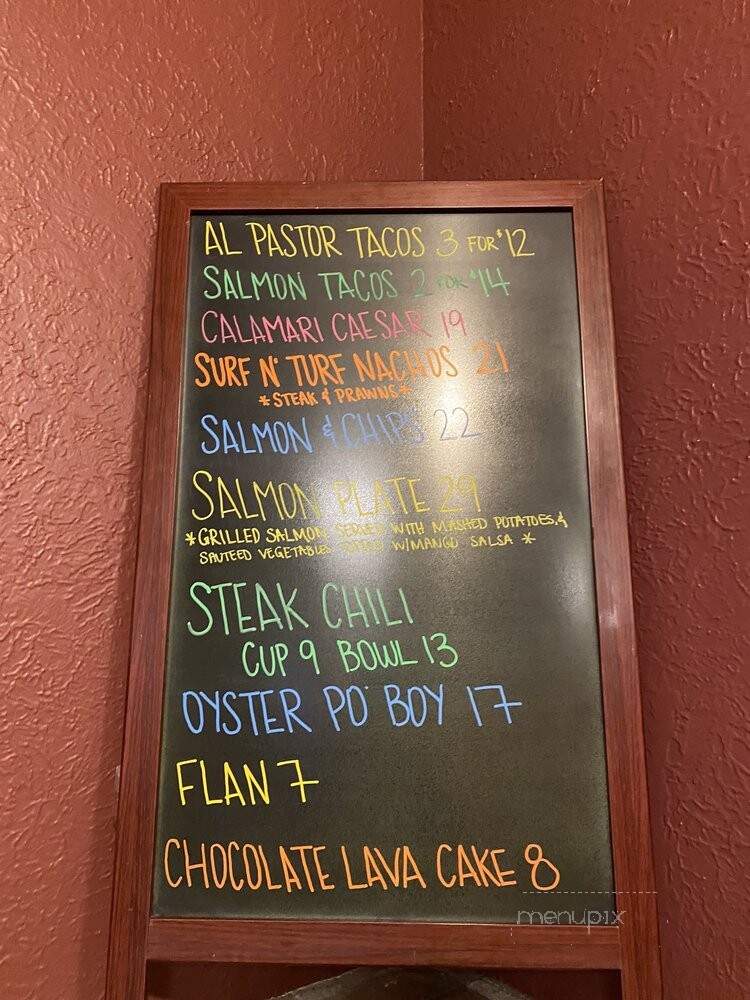 AL PASTOR TACOS 3 FOR $12
SALMON TACOS 2 FOR $14
CALAMARI CAESAR 19
SURF N' TURF NACHOS 21
*STEAK & PRAWNS*
SALMON & CHIPS 22
SALMON PLATE 29
*GRILLED SALMON SERVED WITH MASHED POTATOES &
SAUTEED VEGETABLES W/MANGO SALSA *
STEAK CHILI
CUP 9 BOWL 13
OYSTER PO' BOY 17
FLAN 7
CHOCOLATE LAVA CAKE 8
menupix